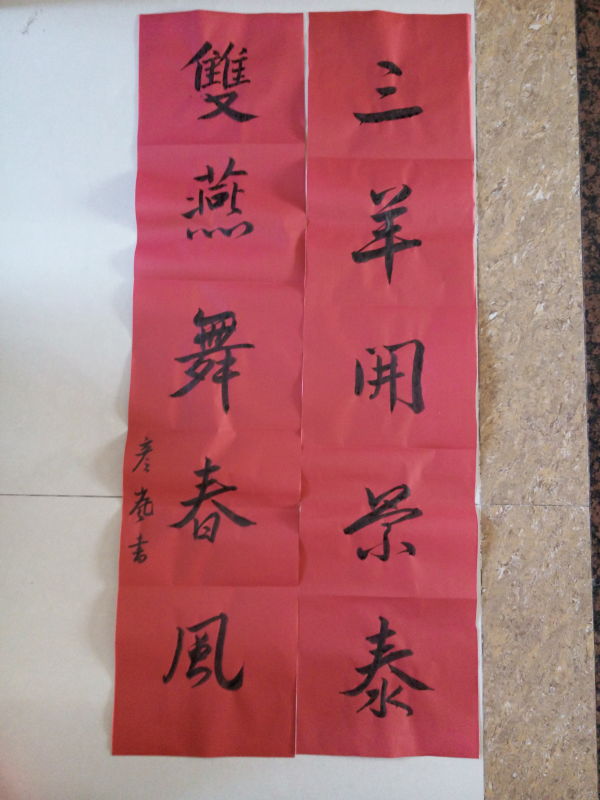 三羊開景泰
雙燕舞春風
彦嵐書